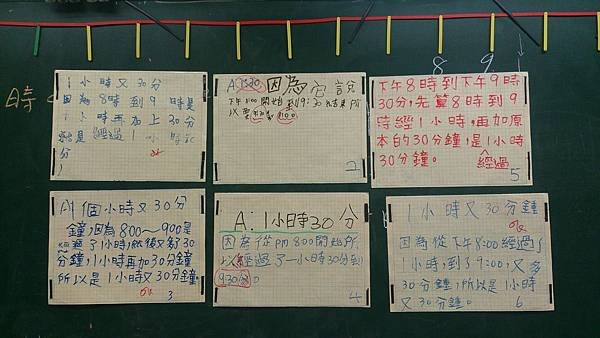 8 9 1
時
1小時又30分
因為8時到9時是
1小時再加上30分
就是經過1小時30
分
ok
A:1:30 因為它說
下午8:00開始到9:30結束所
以要
2
下午8時到下午9時
30分,先算8時到9
時經1小時,再加原
本的30分鐘,是1小時
30分鐘。 經過
5
A:1個小時又30分
鐘,因為800～900是
經過了1小時,然後又多了30
分鐘,1小時再加30分鐘
所以是1小時又30分鐘。
ok 3
A:1小時30分
因為從pm800開始所
以經過了一小時30分到
930分。
4
1小時又30分鐘
ok
因為從下午8:00經過了
1小時,到了9:00,又多
30分鐘,所以是1小時
又30分鐘。 6